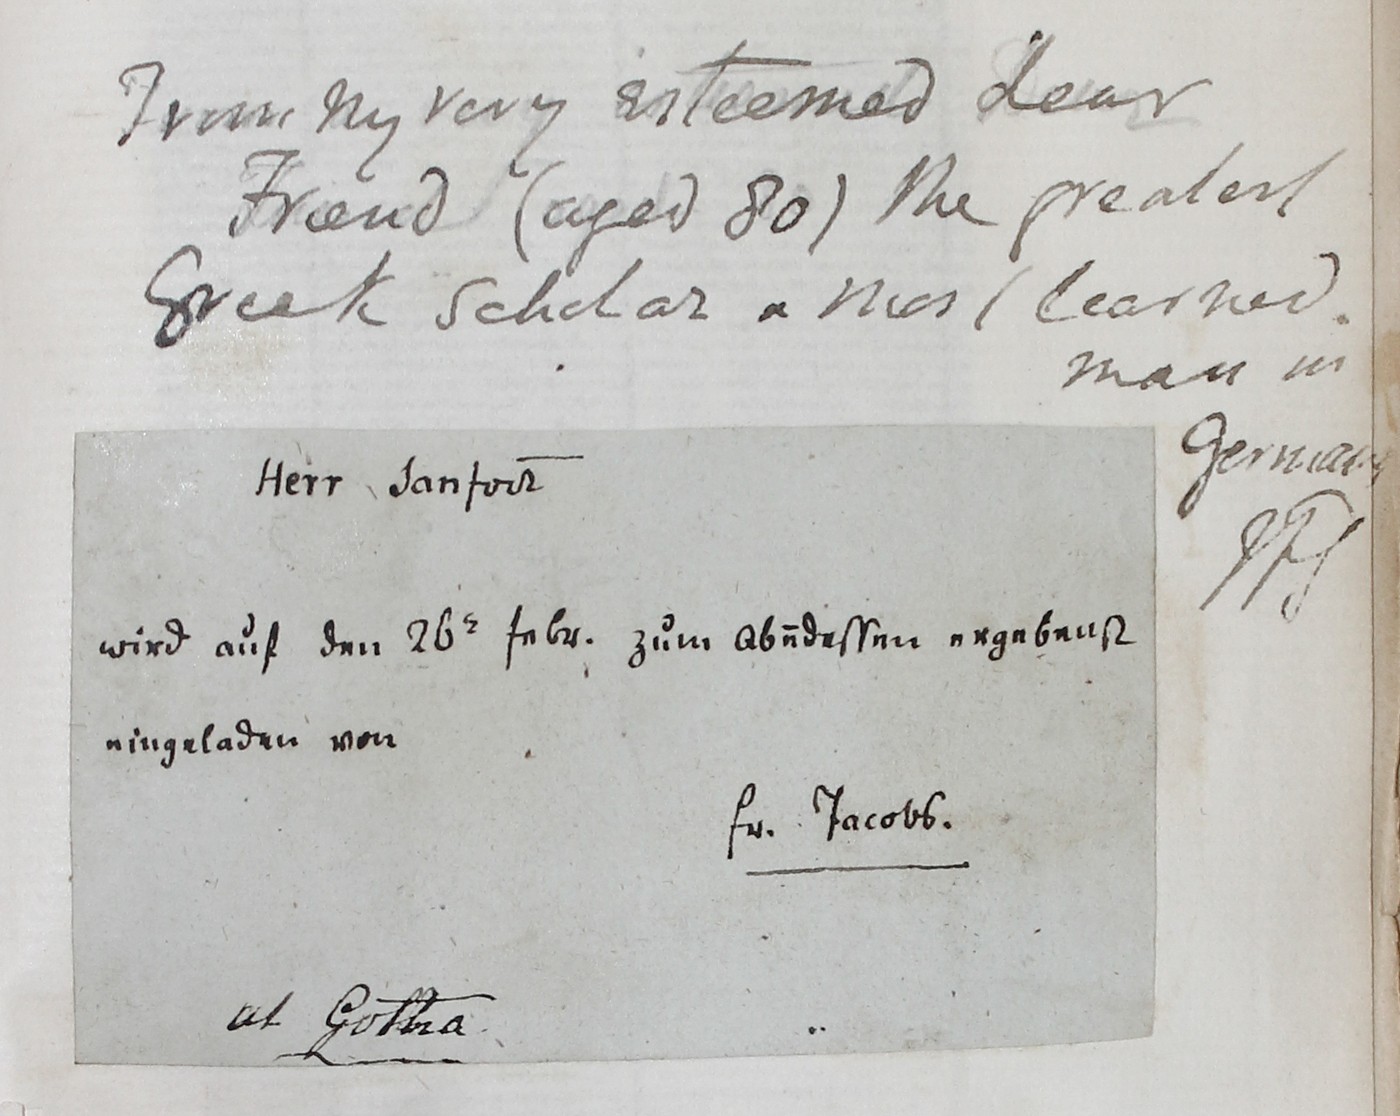 From My very esteemed dear
Friend (aged 80) the greatest
Greek Scholar & most learned
man in
Germany
Herr Sanford
wird auf den 26r febr. zum Abendessen ergebenst
eingeladen von
Fr. Jacobs.
at Gotha